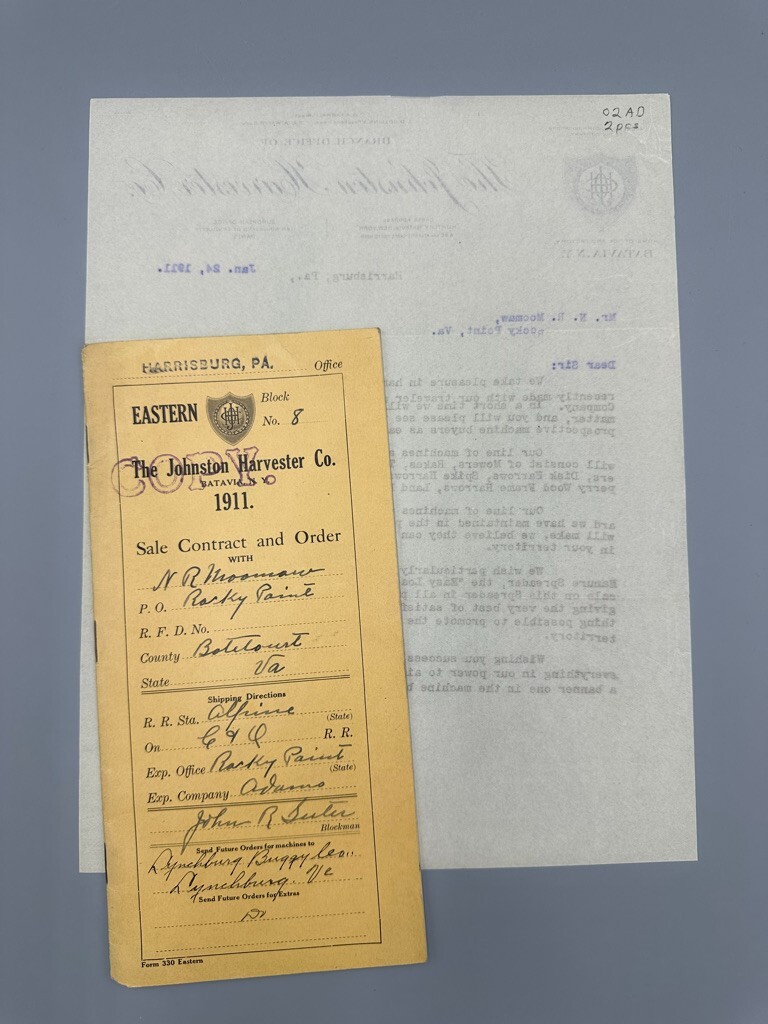 02AD
2 pcs
BRANCH OFFICE OF
The Johnston Harvester Co.
BATAVIA, N.Y.
Harrisburg, Pa., Jan. 24, 1911.
Mr. N. R. Moomaw,
Rocky Point, Va.
Dear Sir:
We take pleasure in
recently made with our traveler
Company. In a short time we will
matter, and you will please
prospective machine buyers as
Our line of machines
will consist of Mowers, Rakes,
ers, Disk Harrows, Spike Harrows
perry Wood Frame Harrows, Land
Our line of machines
ard we have maintained in the
will make, we believe they can
in your territory.
We wish particularly
Manure Spreader, the "Easy
cale on this Spreader in all
giving the very best of
thing possible to promote the
territory.
Wishing you success
everything in our power to
a banner one in the machine
HARRISBURG, PA. Office
EASTERN Block
No. 8
COPY.
The Johnston Harvester Co.
BATAVIA, N.Y.
1911.
Sale Contract and Order
WITH
N R Moomaw
P. O. Rocky Point
R. F. D. No.
County Botetourt
State Va
Shipping Directions
R. R. Sta. Alpine (State)
On C & O R. R.
Exp. Office Rocky Point (State)
Exp. Company Adams
John R Suter
Blockman
Send Future Orders for machines to
Lynchburg Buggy Co.
Lynchburg Va
Send Future Orders for Extras
Do
Form 330 Eastern